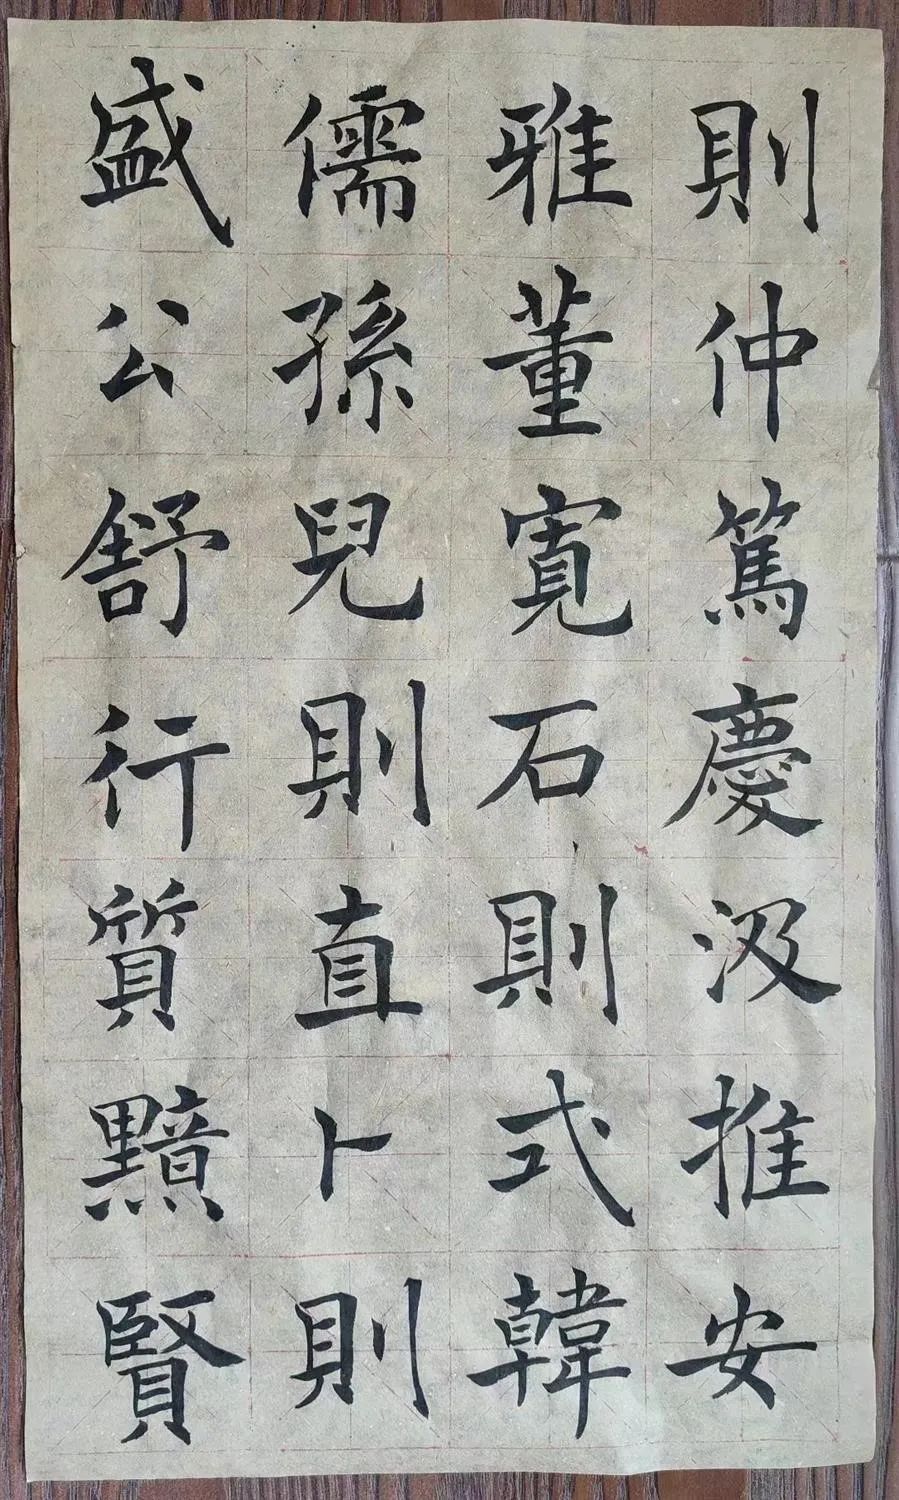 盛儒雅則
公孫董仲
舒兒寬篤
行則石慶
質直則汲
黯卜式推
賢則韓安